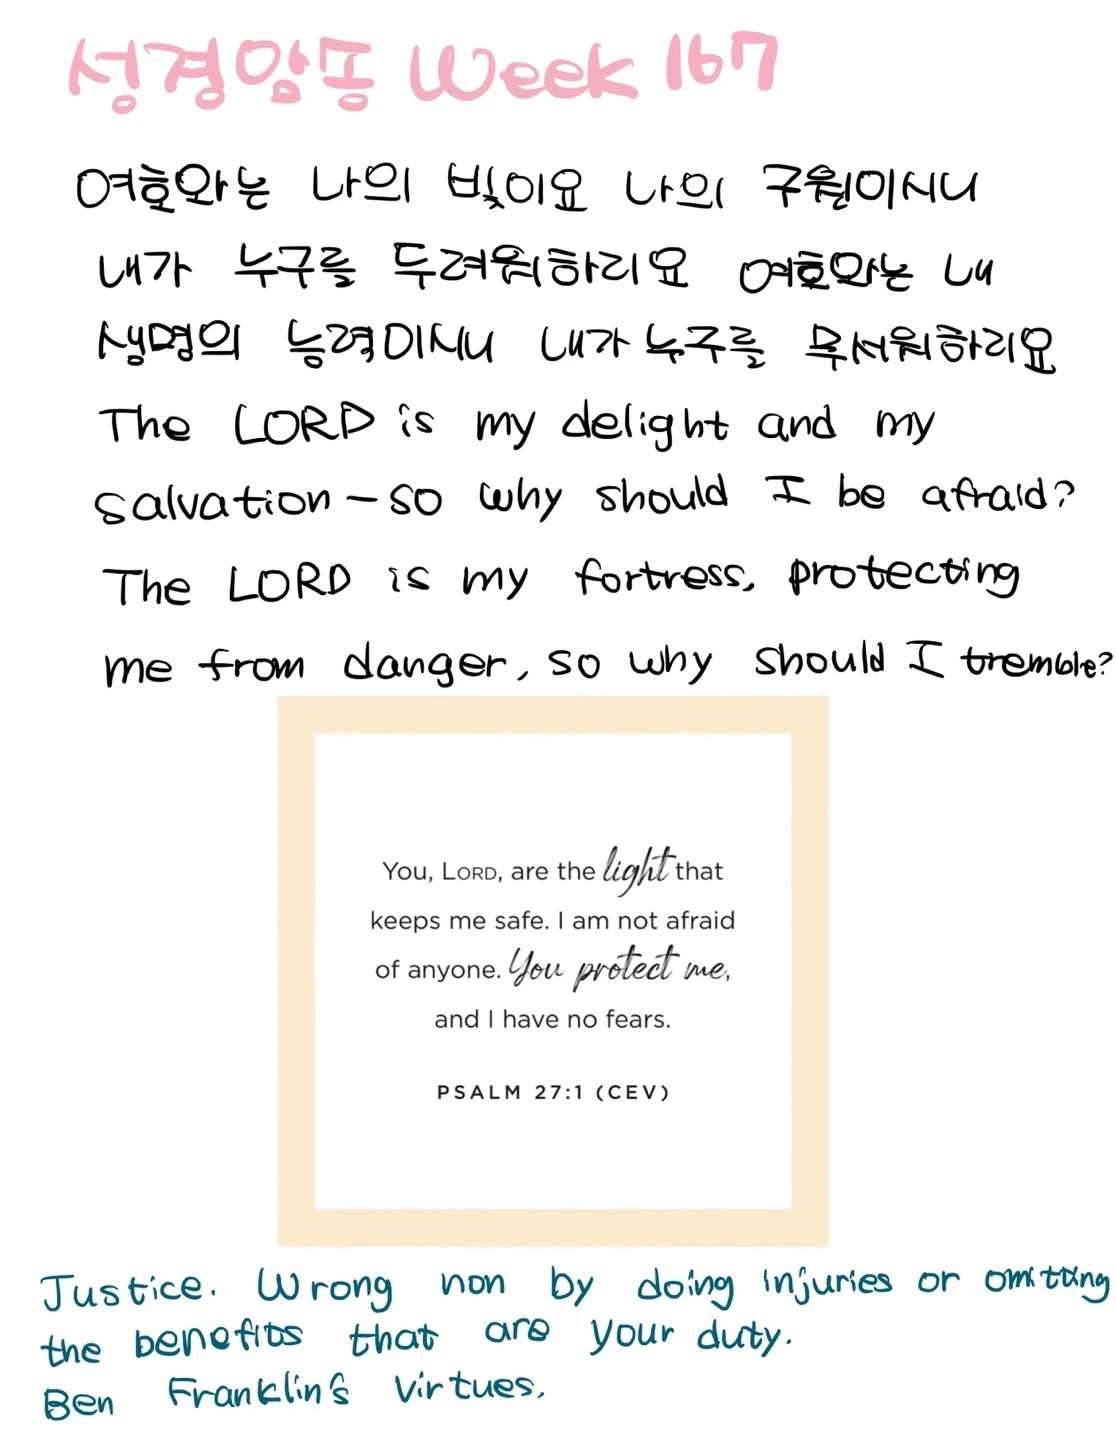 성경암송 Week 167
여호와는 나의 빛이요 나의 구원이시니
내가 누구를 두려워하리요 여호와는 내
생명의 능력이시니 내가 누구를 무서워하리요
The LORD is my delight and my
salvation – so why should I be afraid?
The LORD is my fortress, protecting
me from danger, so why should I tremble?
You, LORD, are the light that
keeps me safe. I am not afraid
of anyone. You protect me,
and I have no fears.
PSALM 27:1 (CEV)
Justice. Wrong non by doing injuries or omitting
the benefits that are your duty.
Ben Franklin's Virtues.